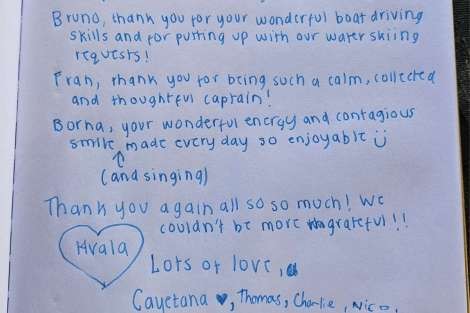 Bruno, thank you for your wonderful boat driving
skills and for putting up with our water skiing
requests!
Fran, thank you for being such a calm, collected
and thoughtful captain!
Borna, your wonderful energy and contagious
smile made every day so enjoyable
(and singing)
Thank you again all so so much! We
couldn't be more grateful!!
Hvala
Lots of love,
Cayetana ♥, Thomas, Charlie, Nico,